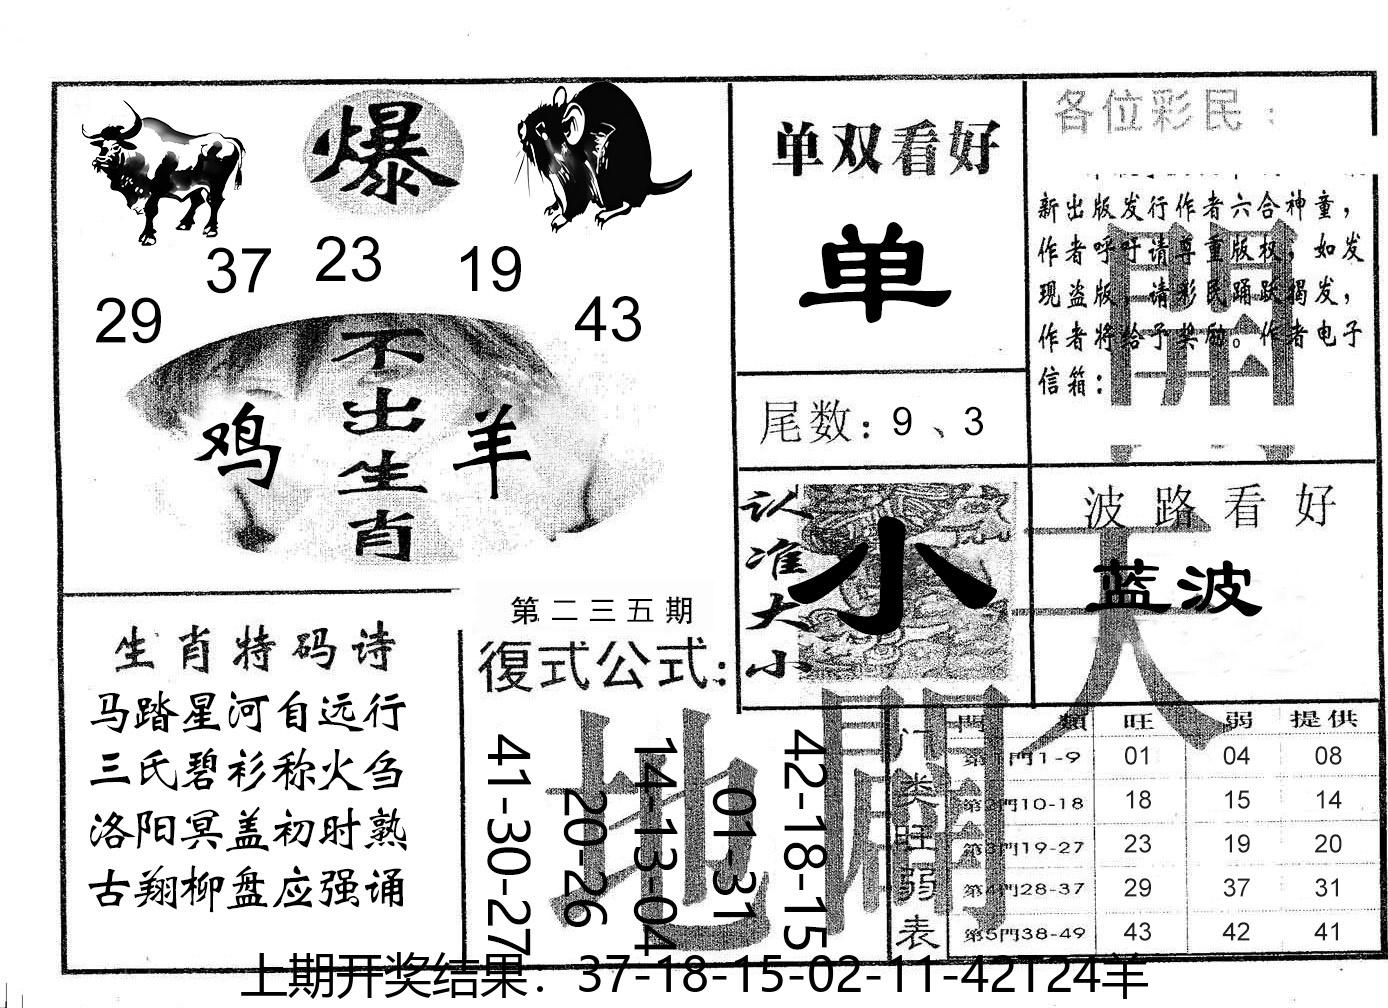 爆
37 23 19
29 43
不出生肖
鸡 羊
单双看好
单
尾数：9、3
认准大小
小
各位彩民：
新出版发行作者六合神童，
作者呼吁请尊重版权，如发
现盗版，请彩民踊跃揭发，
作者将给予奖励。作者电子
信箱：
波路看好
蓝波
天
開
生肖特码诗
马踏星河自远行
三氏碧衫称火刍
洛阳冥盖初时熟
古翔柳盘应强诵
第二三五期
復式公式：
地
闢
41-30-27
20-26
14-13-04
01-31
42-18-15
门类旺弱表
門類 旺 弱 提供
第1門1-9 01 04 08
第2門10-18 18 15 14
第3門19-27 23 19 20
第4門28-37 29 37 31
第5門38-49 43 42 41
上期开奖结果：37-18-15-02-11-42T24羊